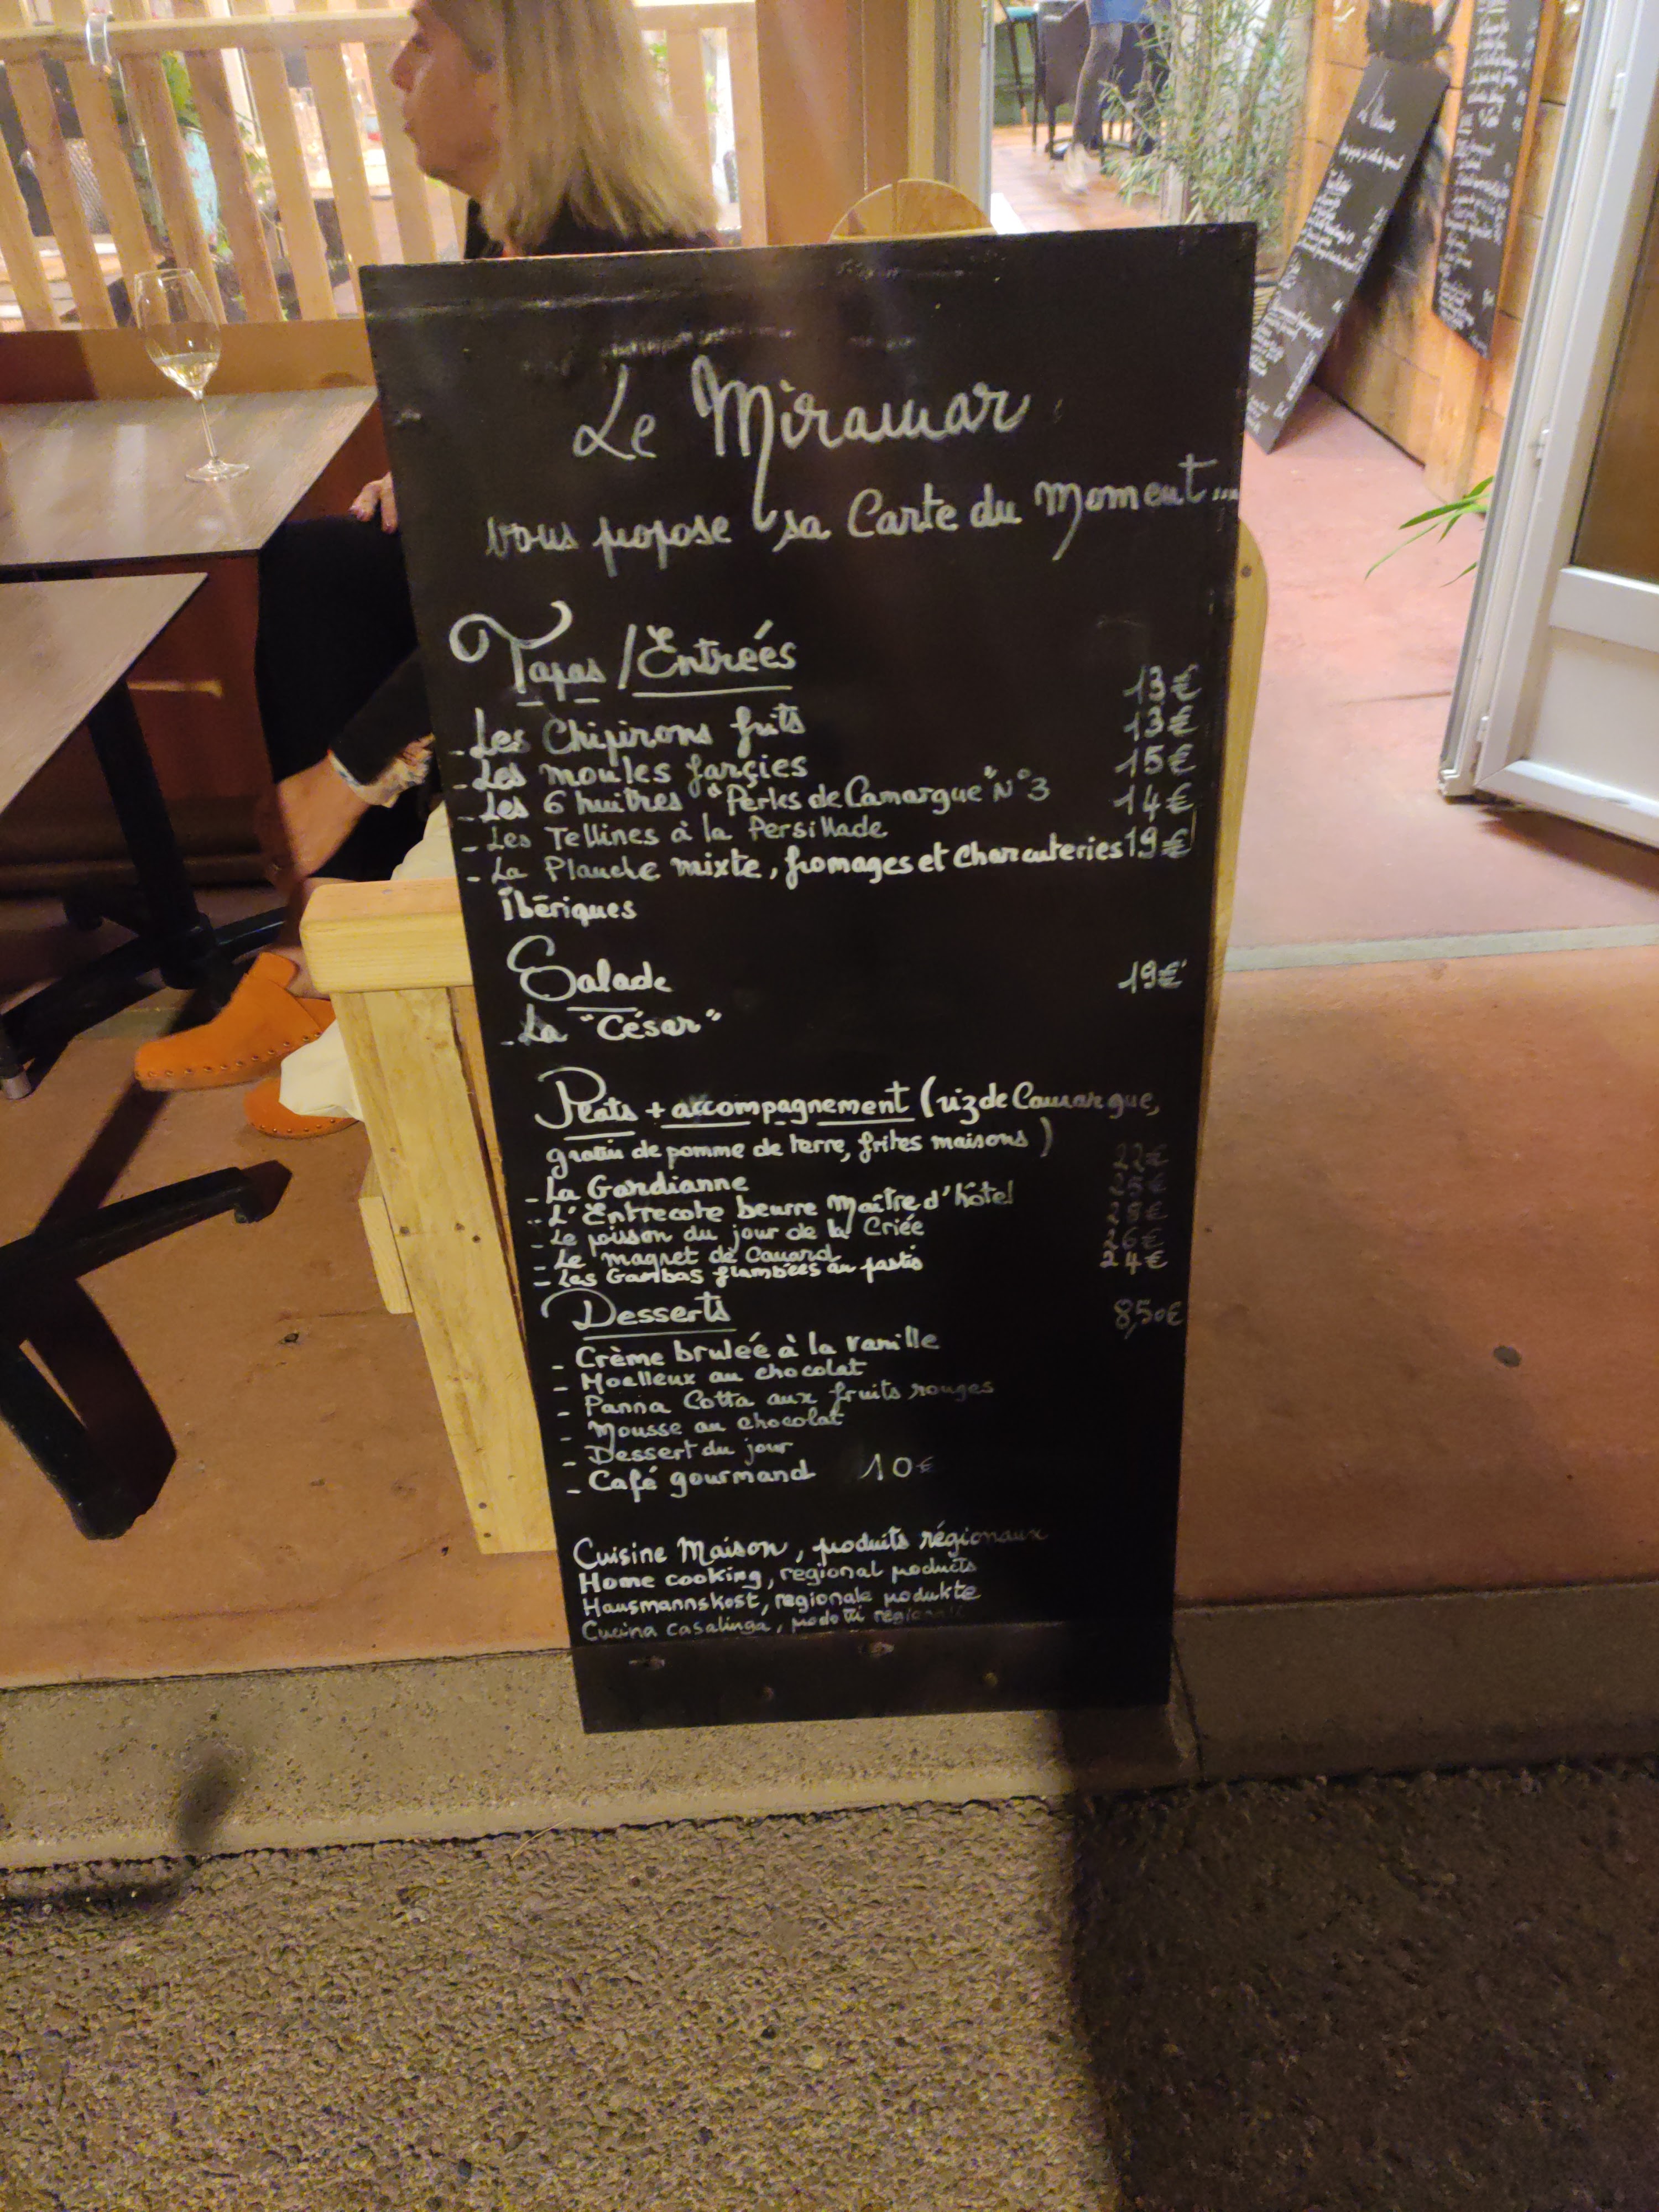 Le Miramar
vous propose sa Carte du Moment...
Tapas / Entrées
- Les Chipirons frits 13€
- Les moules farçies 13€
- Les 6 huîtres "Perles de Camargue" N°3 15€
- Les Tellines à la Persillade 14€
- La Planche mixte, fromages et Charcuteries 19€
Ibériques
Salade 19€
- La "César"
Plats + accompagnement (riz de Camargue,
gratin de pomme de terre, frites maisons)
- La Gardianne 22€
- L'Entrecote beurre Maître d'hôtel 25€
- Le poisson du jour de la Criée
- Le magret de Canard 26€
- Les Gambas flambées au pastis 24€
Desserts 8,50€
- Crème brulée à la vanille
- Moelleux au chocolat
- Panna Cotta aux fruits rouges
- Mousse au chocolat
- Dessert du jour
- Café gourmand 10€
Cuisine Maison, produits régionaux
Home cooking, regional products
Hausmannskost, regionale produkte
Cucina casalinga, prodotti regionali